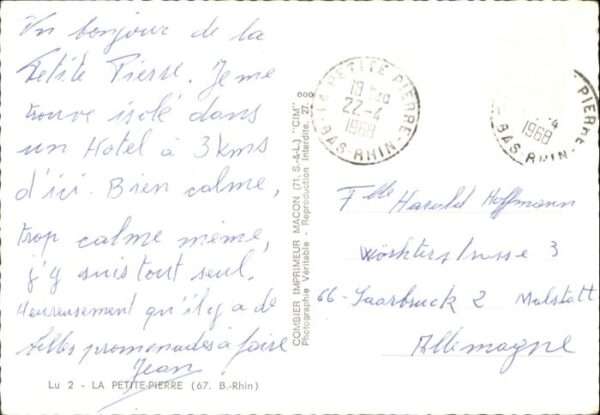 Un bonjour de la
Petite Pierre. Je me
trouve isolé dans
un Hotel à 3 kms
d'ici. Bien calme,
trop calme même,
j'y suis tout seul.
Heureusement qu'il y a de
belles promenades à faire
Jean
Lu 2 - LA PETITE-PIERRE (67. B.-Rhin)
COMBIER IMPRIMEUR MACON (71. S.-&-L.) "CIM"
Photographie Véritable - Reproduction Interdite.
LA PETITE PIERRE
22-4
1968
BAS-RHIN
PIERRE
-4
1968
BAS RHIN
Flle Harold Hoffmann
3
66-Saarbruck 2 Malstatt
Allemagne